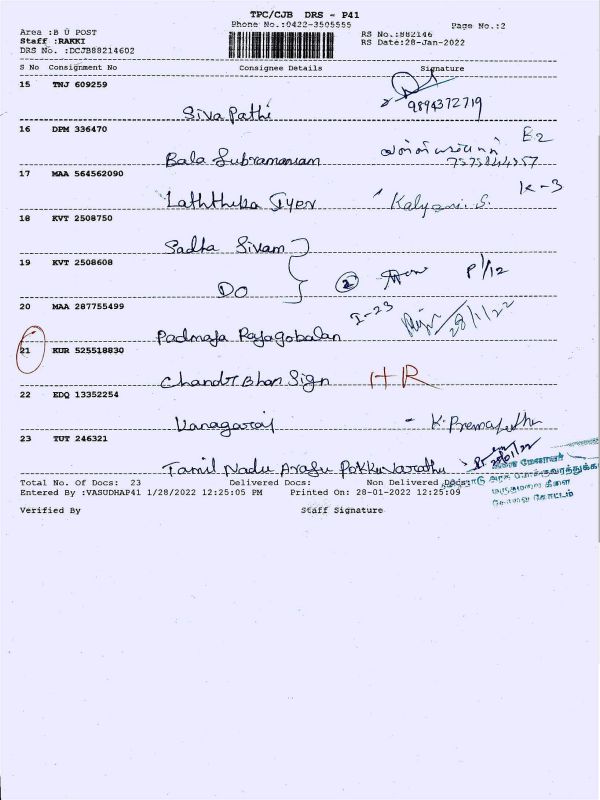 TPC/CJB DRS - P41
Phone No.:0422-3505555 Page No.:2
Area :B U POST RS No.:882146
Staff :RAKKI RS Date:28-Jan-2022
DRS No. :DCJB88214602
S No Consignment No Consignee Details Signature
15 TNJ 609259
9894372719
Siva Pathi
16 DPM 336470 E2
Bala Subramaniam
17 MAA 564562090 K-3
Laththika Iyer Kalyani. S.
18 KVT 2508750
Sadha Sivam
19 KVT 2508608
Do 2 P1/12
20 MAA 287755499 I-23 28/1/22
Padmaja Rajagobalan
21 KUR 525518830
Chandr Bhan Sign HR
22 EDQ 13352254
Kanagaraj - K.
23 TUT 246321
Tamil Nadu Arasu Pokkuvarathu
கிளை மேலாளர்
Total No. Of Docs: 23 Delivered Docs: Non Delivered Docs:
அரசு போக்குவரத்துக்
Entered By :VASUDHAP41 1/28/2022 12:25:05 PM Printed On: 28-01-2022 12:25:09
மருதமலை கிளை
கோவை கோட்டம்
Verified By Staff Signature